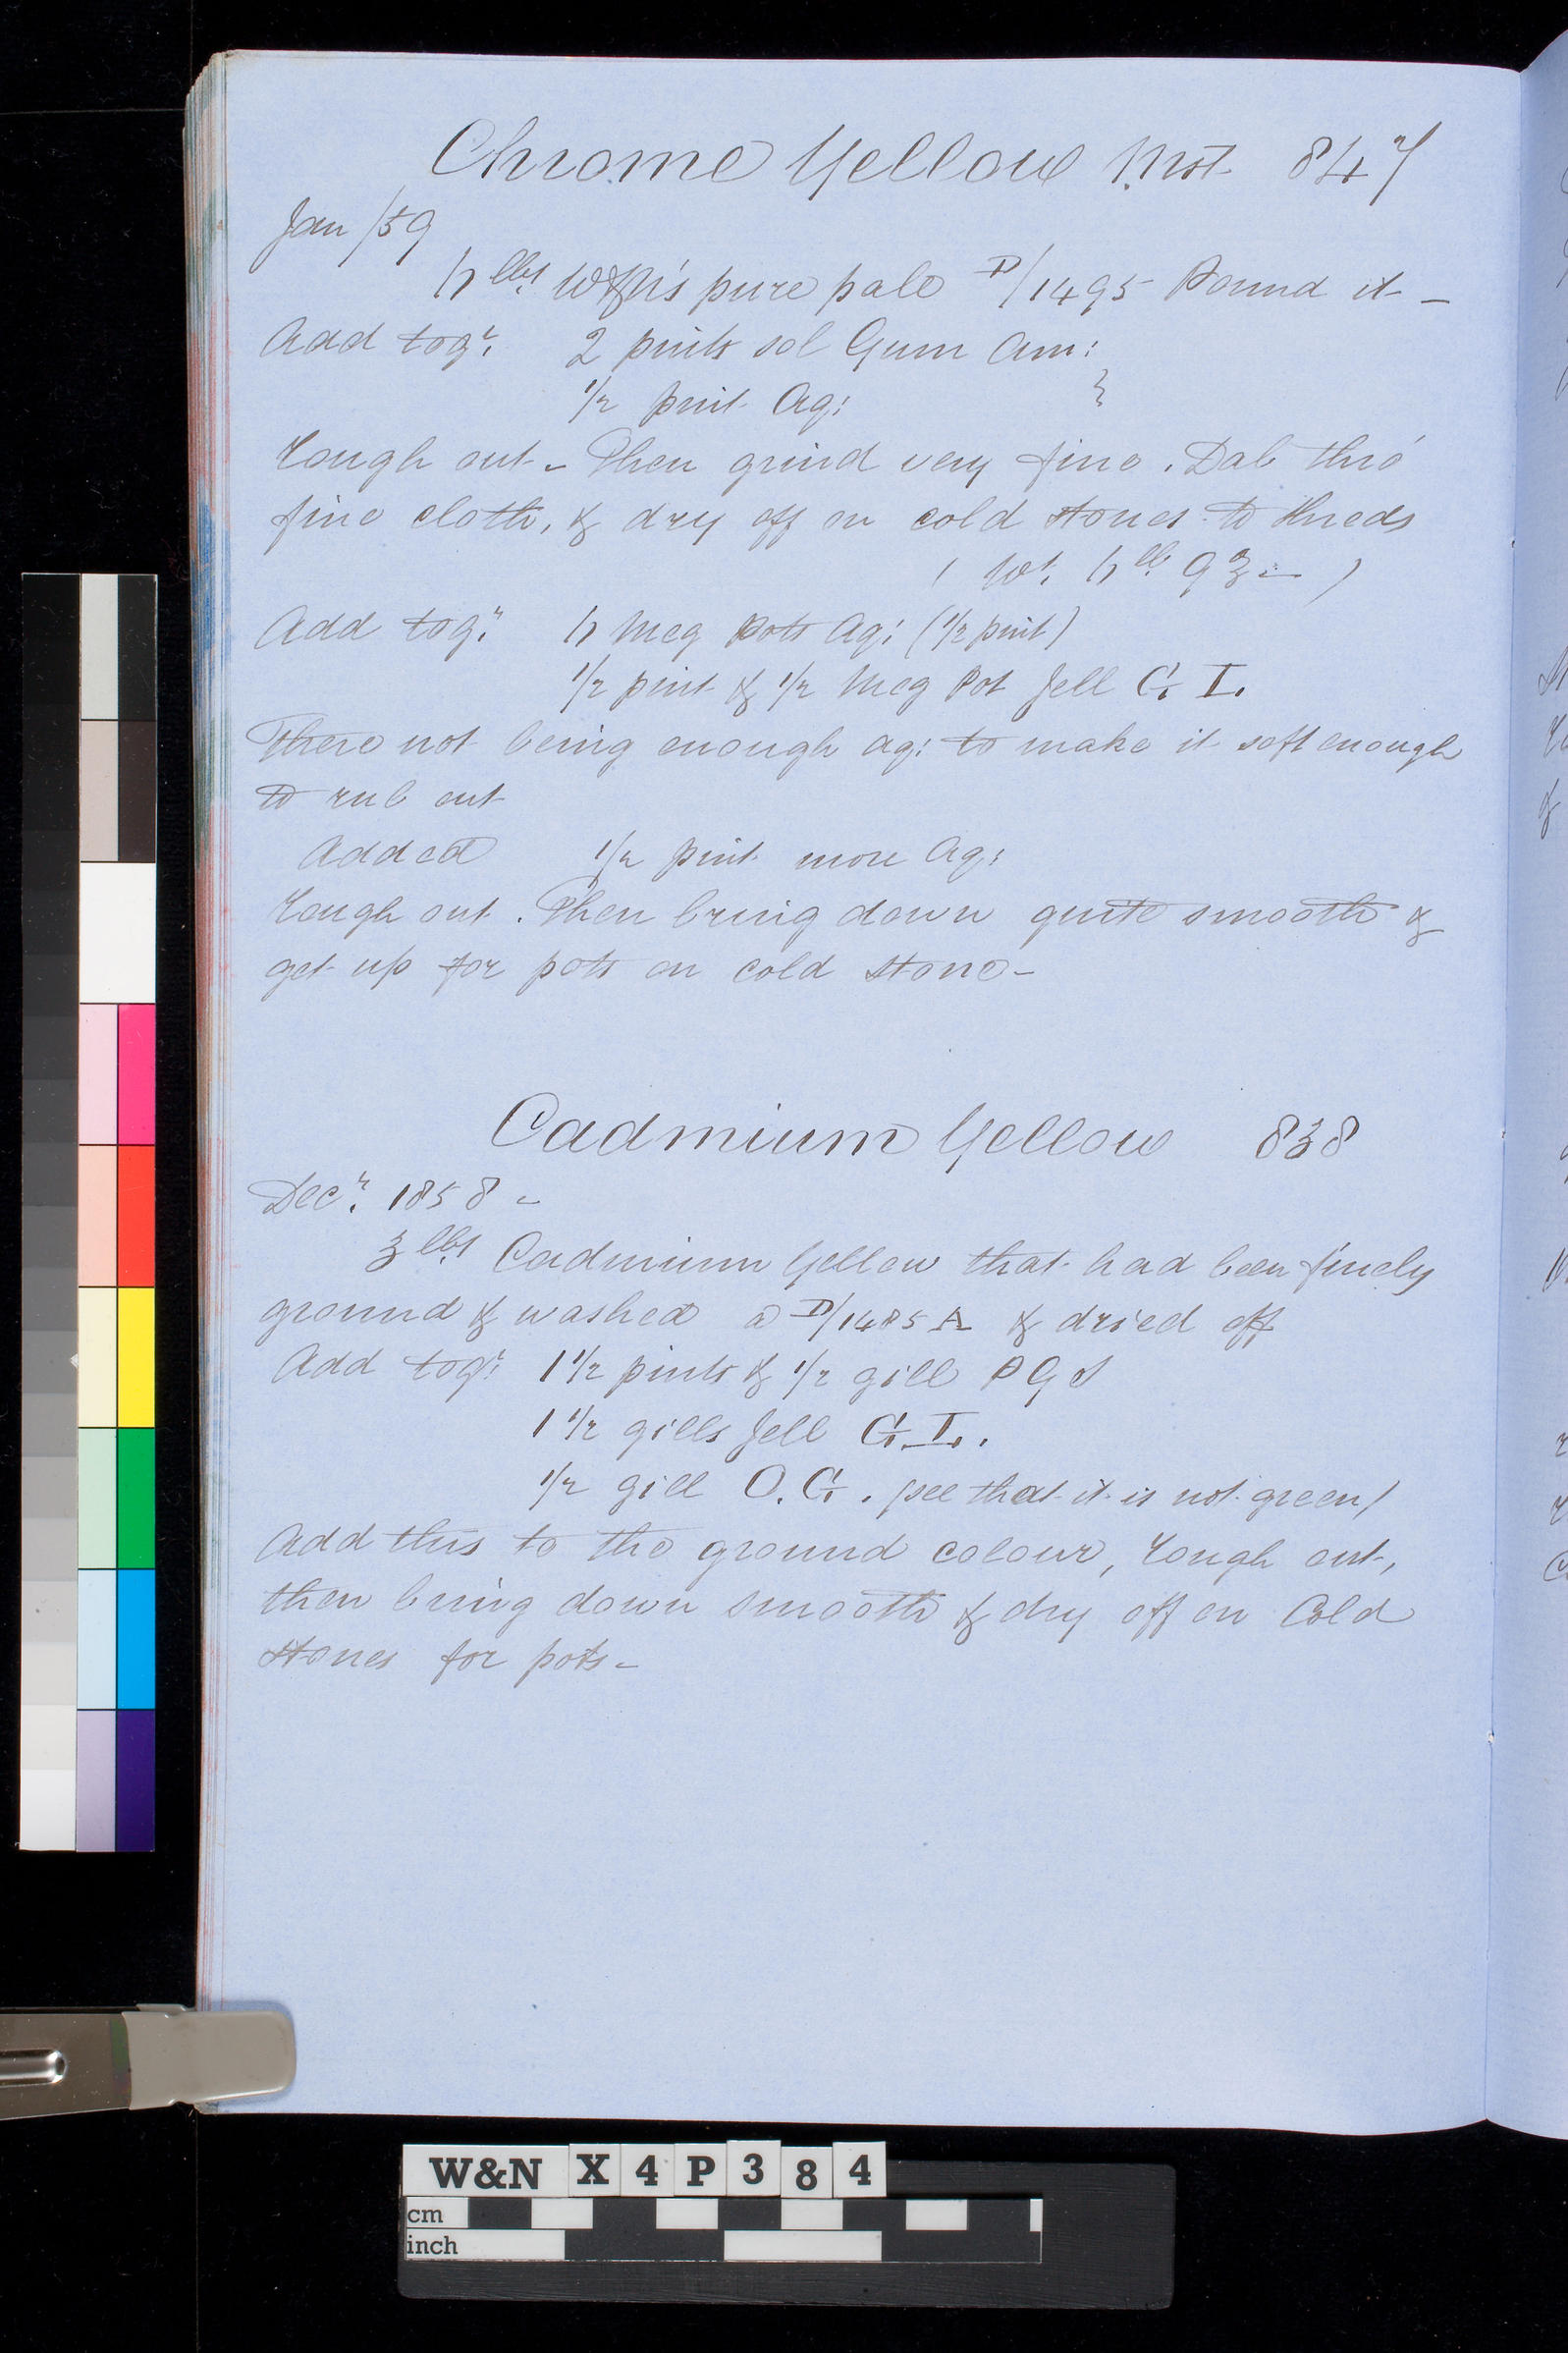 Chrome Yellow Mst 847
Jan /59
lbs W&N's pure pale D/1495 Pound it -
Add togr. 2 pints sol Gum Am:
1/2 pint Aq: }
Rough out - Then grind very fine. Dab thro'
fine cloth, & dry off on cold stones to threeds
( Wt. lb 9℥ - )
Add togr. Meg Pots Aq: (1/2 pint)
1/2 pint & 1/2 Meg Pot Jell G. I.
There not being enough aq: to make it soft enough
to rub out
Added 1/2 pint more Aq:
Rough out. Then bring down quite smooth &
get up for pots on cold stone -
Cadmium Yellow 838
Decr. 1858 -
3 lbs Cadmium Yellow that had been finely
ground & washed a D/1485 A & dried off
Add togr: 1 1/2 pints & 1/2 gill P G S
1 1/2 gills Jell G. I.
1/2 gill O. G. (see that it is not green)
Add this to the ground colour, Rough out,
then bring down smooth & dry off on Cold
stones for pots -
W&N X 4 P 3 8 4
cm
inch